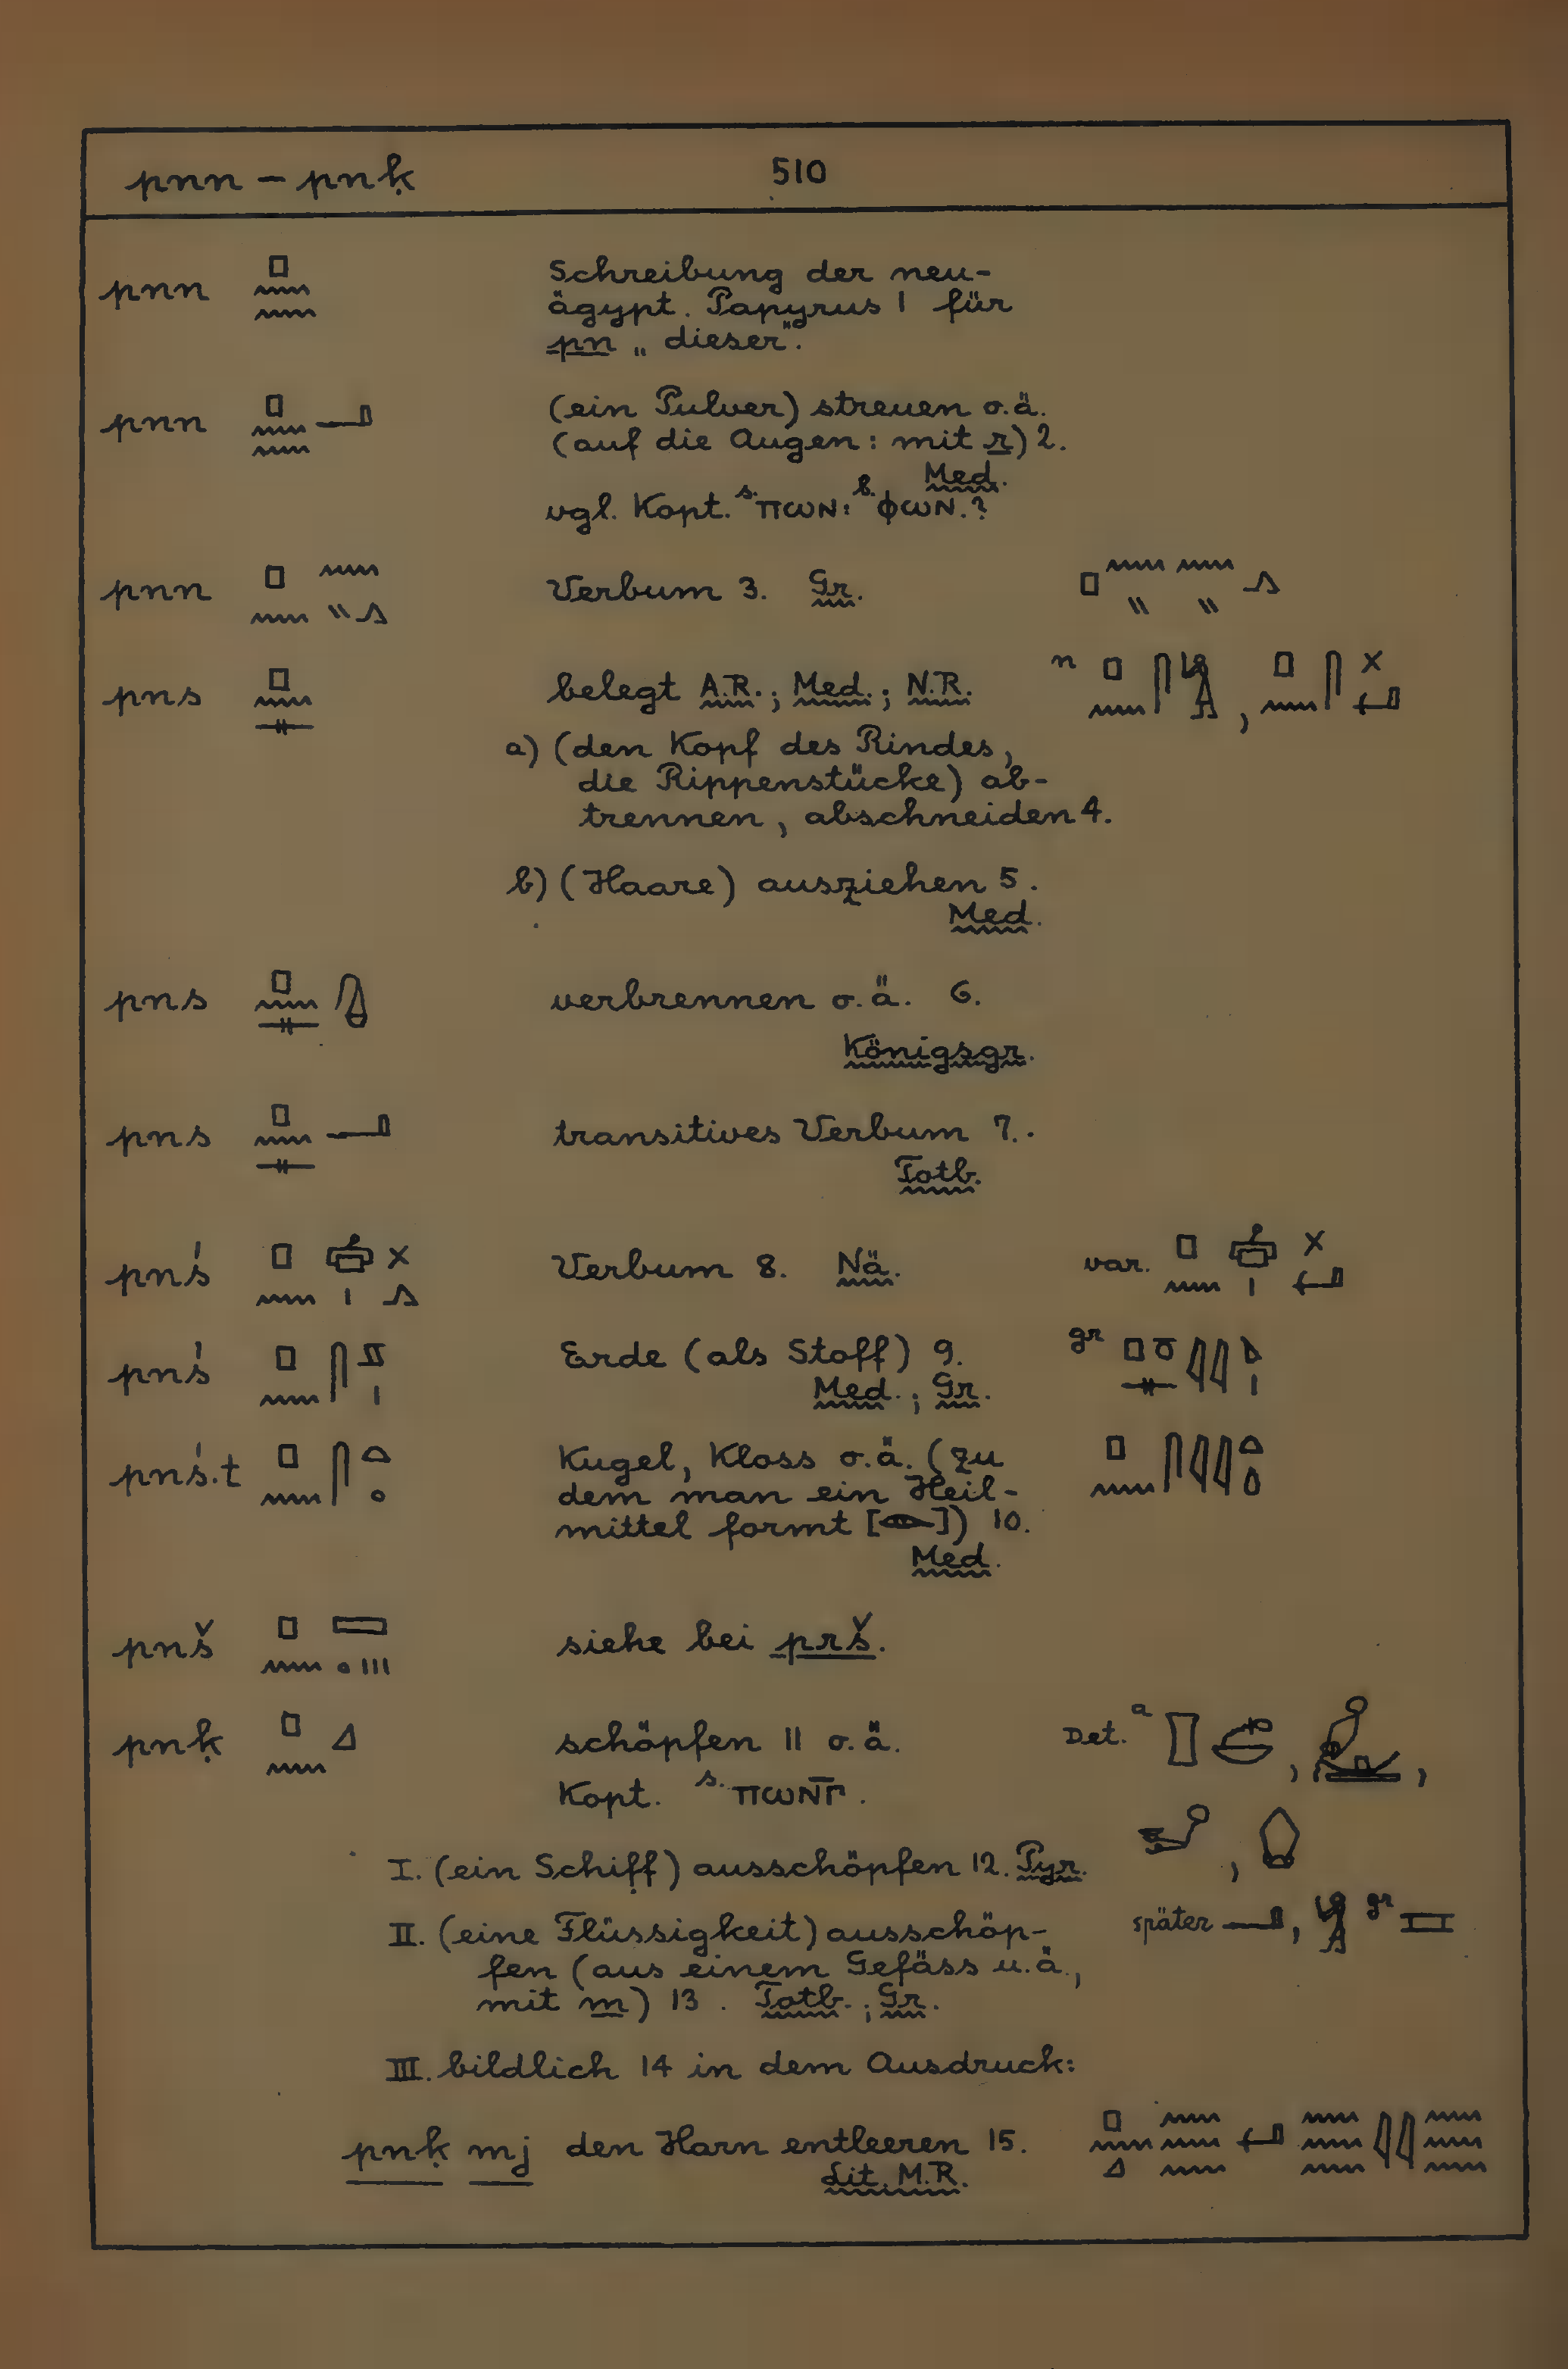 pnn – pnḳ 510
pnn Schreibung der neu-
ägypt. Papyrus 1 für
pn „dieser".
pnn (ein Pulver) streuen o.ä.
(auf die Augen: mit r) 2.
Med.
vgl. Kopt. s. ⲡⲱⲛ: b. ⲫⲱⲛ.?
pnn Verbum 3. Gr.
pns belegt A.R.; Med.; N.R. n
a) (den Kopf des Rindes,
die Rippenstücke) ab-
trennen, abschneiden 4.
b) (Haare) ausziehen 5.
Med.
pns verbrennen o.ä. 6.
Königsgr.
pns transitives Verbum 7.
Totb.
pnś Verbum 8. Nä. var.
pnś Erde (als Stoff) 9. gr
Med.; Gr.
pnś.t Kugel, Kloss o.ä. (zu
dem man ein Heil-
mittel formt [𓆛]) 10.
Med.
pnš siehe bei prš.
pnḳ schöpfen 11 o.ä. Det. a
Kopt. s. ⲡⲱⲛⲅ̅.
I. (ein Schiff) ausschöpfen 12. Pyr.
II. (eine Flüssigkeit) ausschöp- später gr
fen (aus einem Gefäss u.ä.,
mit m) 13. Totb.; Gr.
III. bildlich 14 in dem Ausdruck:
pnḳ mj den Harn entleeren 15.
Lit. M.R.